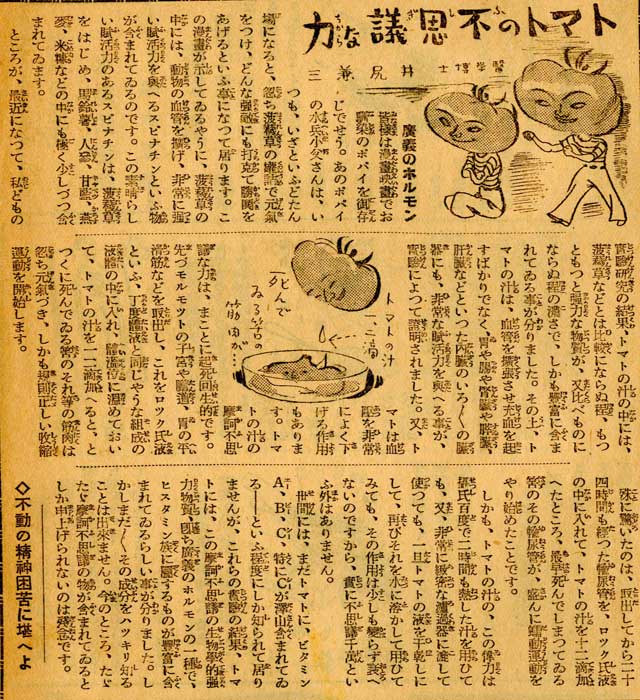 トマトの不思議な力
醫學博士 井尻兼三
廣義のホルモン
皆様は漫畫映畫でお
馴染のポパイを御存
じでせう。あのポパイ
の水兵小父さんは、い
つも、いざといふどたん
場になると、忽ち菠薐草の鑵詰で元氣
をつけ、どんな強敵にも打克て凱歌を
あげるといふ事になつて居ります。こ
の漫畫が示してゐるやうに、菠薐草の
中には、動物の血管を擴げ、非常に強
い賦活力を與へるスピナチンといふ物
が含まれてゐるのです。この素晴らし
い賦活力のあるスピナチンは、菠薐草
をはじめ、馬鈴薯、人蔘、甘藍、燕
麥、米糠などの中にも極く少しづつ含
まれてゐます。
ところが、最近になつて、私どもの
實驗研究の結果、トマトの汁の中には、
菠薐草などとは比較にならぬ程、もつ
ともつと強力な物質が、又比べものに
ならぬ程の濃さで、しかも豐富に含ま
れてゐる事が分りました。その上、ト
マトの汁は、血管を緊張させ充血を起
すばかりでなく、胃や腸や腎臟や膵臟、
肝臟などといつた内臟のいろ〱の臟
器にも、非常な賦活力を與へる事が、
實驗によつて證明されました。又、ト
マトは血
壓を非常
によく下
げる作用
もありま
す。トマ
トの汁の
摩訶不思
議な力は、まことに起死回生的です。
先づモルモツトの子宮や膽嚢、胃の平
滑筋などを取出し、これをロツク氏液
といふ、丁度體液と同じやうな組成の
液體の中に入れ、體温位に温めておい
て、トマトの汁を一二滴加へると、と
つくに死んでゐる筈のそれ等の筋肉は
忽ち元氣づき、しかも規則正しい收縮
運動を開始します。
トマトの汁
一、二滴
死んで
ゐる筈の
筋肉が…
殊に驚いたのは、取出してから二十
四時間も經つた輸尿管を、ロツク氏液
の中に入れて、トマトの汁を十二滴加
へたところ、最早死んでしまつてゐる
筈のその輸尿管が、盛んに蠕動運動を
やり始めたことです。
しかも、トマトの汁の、この偉力は
攝氏百度で二時間も熱した汁を用ひて
も、又、非常に緻密な濾過器に濾して
使つても、一旦トマトの液を干乾しに
して、再びそれを水に溶かして用ひて
みても、その作用は少しも變らず衰へ
ないのですから、實に不思議千萬とい
ふ外はありません。
世間には、まだトマトに、ビタミン
A、B、C、特にCが澤山含まれてゐ
る――といふ程度にしか知られて居り
ませんが、これらの實驗の結果、トマ
トには、この摩訶不思議の生物學的強
力物質、即ち廣義のホルモンの一種で、
ヒスタミン族に屬するものが豐富に含
まれてゐるらしい事が分りました。し
かしまだ〱その成分をハツキリ知る
ことは出來ません。今のところ、たゞ
たゞ摩訶不思議の物が含まれてゐると
しか申上げられないのは殘念です。
◇不動の精神困苦に堪へよ